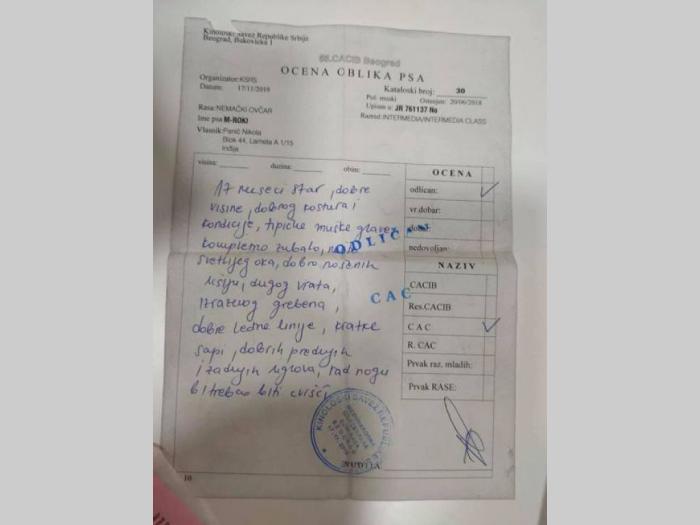 Kinološki savez Republike Srbije
Beograd, Bukovička 1
88.CACIB Beograd
OCENA OBLIKA PSA
Organizator: KSRS
Datum: 17/11/2019
Kataloski broj: 30
Pol: muski Ostenjen: 20/06/2018
Upisan u: JR 761137 No
Rasa: NEMAČKI OVČAR
Razred: INTERMEDIA/INTERMEDIA CLASS
Ime psa M-ROKI
Vlasnik: Panić Nikola
Blok 44, Lamela A 1/15
Inđija
visina: dužina: obim:
OCENA
odličan:
vr.dobar:
dobar:
nedovoljan:
NAZIV
CACIB
Res.CACIB
CAC
R. CAC
Prvak raz. mladih:
Prvak RASE:
17 meseci star, dobre
visine, dobrog kostura i
kondicije, tipične muške glave,
kompletno zubalo,
svetlijeg oka, dobro nošenih
ušiju, dugog vrata,
izraženog grebena,
dobre leđne linije, kratke
sapi, dobrih prednjih
i zadnjih uglova, rad nogu
bi trebao biti čvršći
ODLIČAN
CAC
KINOLOŠKI SAVEZ REPUBLIKE
10